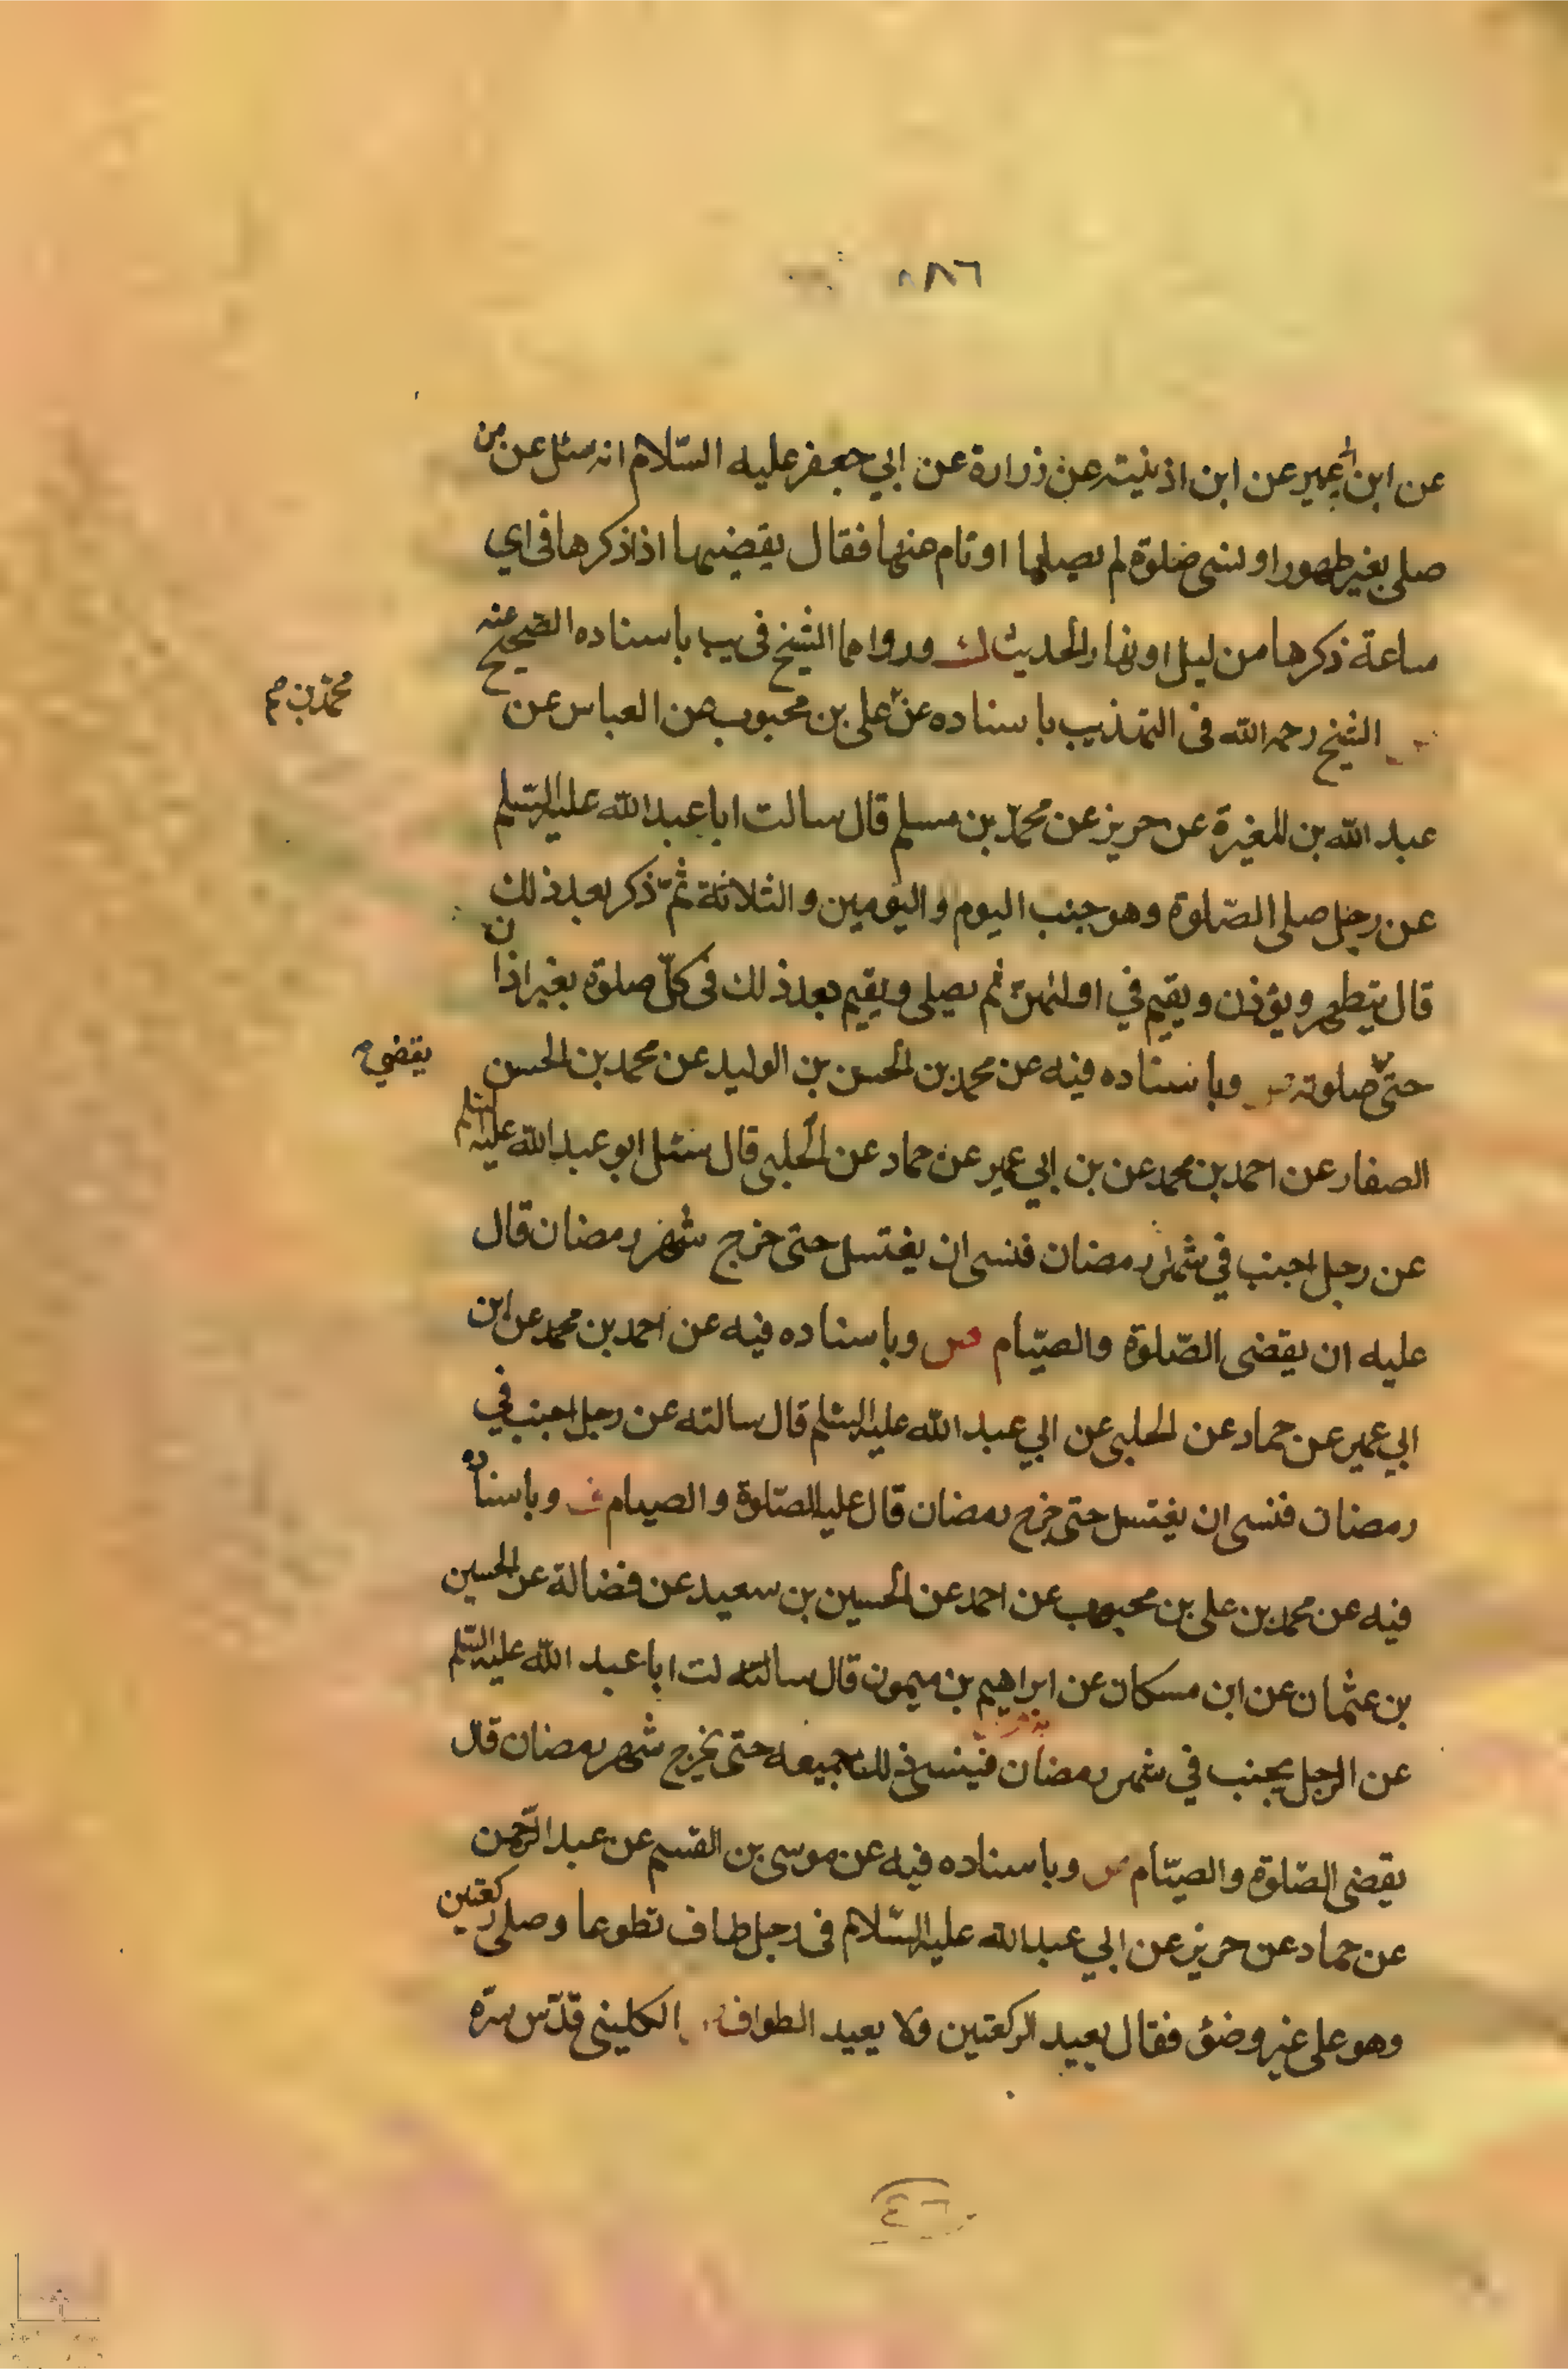 عن ابن ابي عمير عن ابن اذينة عن زرارة عن ابي جعفر عليه السّلام انه سئل عن من
صلى بغير طهور او نسى صلوة لم يصليها او نام عنها فقال يقضيها اذا ذكرها فى اي
ساعة ذكرها من ليل او نهار الحديث ورواهما الشيخ فى يب باسناده الصحيح عنه
الشيخ رحمه الله فى التهذيب باسناده عن على بن محبوب عن العباس عن
محمد بن صح
عبد الله بن المغيرة عن حريز عن محمّد بن مسلم قال سالت ابا عبد الله عليه السّلم
عن رجل صلى الصّلوة وهو جنب اليوم و اليومين و الثلاثة ثمّ ذكر بعد ذلك
قال يتطهر ويؤذن ويقيم في اولهنّ ثم يصلى ويقيم بعد ذلك فى كلّ صلوة بغير اذان
حتى صلوته وباسناده فيه عن محمد بن الحسن بن الوليد عن محمد بن الحسن
يقضي صح
الصفار عن احمد بن محمد عن بن ابي عمير عن حماد عن الحلبى قال سئل ابو عبد الله عليه السلم
عن رجل اجنب في شهر رمضان فنسى ان يغتسل حتى خرج شهر رمضان قال
عليه ان يقضى الصّلوة والصيّام ص وباسناده فيه عن احمد بن محمد عن ابن
ابي عمير عن حماد عن الحلبى عن ابي عبد الله عليه السلم قال سالته عن رجل اجنب في
رمضان فنسى ان يغتسل حتى خرج رمضان قال عليه الصّلوة و الصيام وباسناده
فيه عن محمد بن على بن محبوب عن احمد عن الحسين بن سعيد عن فضالة عن الحسين
بن عثمان عن ابن مسكان عن ابراهيم بن ميمون قال سالته لت ابا عبد الله عليه السّلم
عن الرجل يجنب في شهر رمضان فينسى ذلك جميعه حتى يخرج شهر رمضان قال
يقضى الصّلوة والصيّام ص وباسناده فيه عن موسى بن القسم عن عبد الرّحمن
عن حماد عن حريز عن ابي عبد الله عليه السّلام فى رجل طاف تطوعا وصلى ركعتين
وهو على غير وضؤ فقال يعيد الركعتين ولا يعيد الطواف الكلينى قدّس سرّه